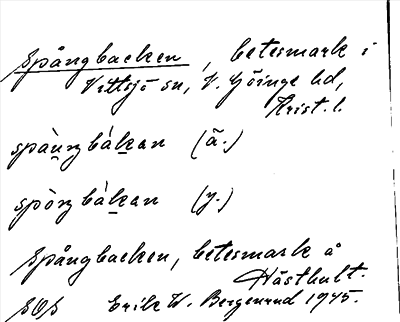 Spångbacken, betesmark i
Vittsjö sn, V. Göinge hd,
Krist. l.
spàu̯ngbákan (ä.)
spòngbákan (y.)
Spångbacken, betesmark å
Hästhult.
SOS Erik W. Bergenrud 1945.